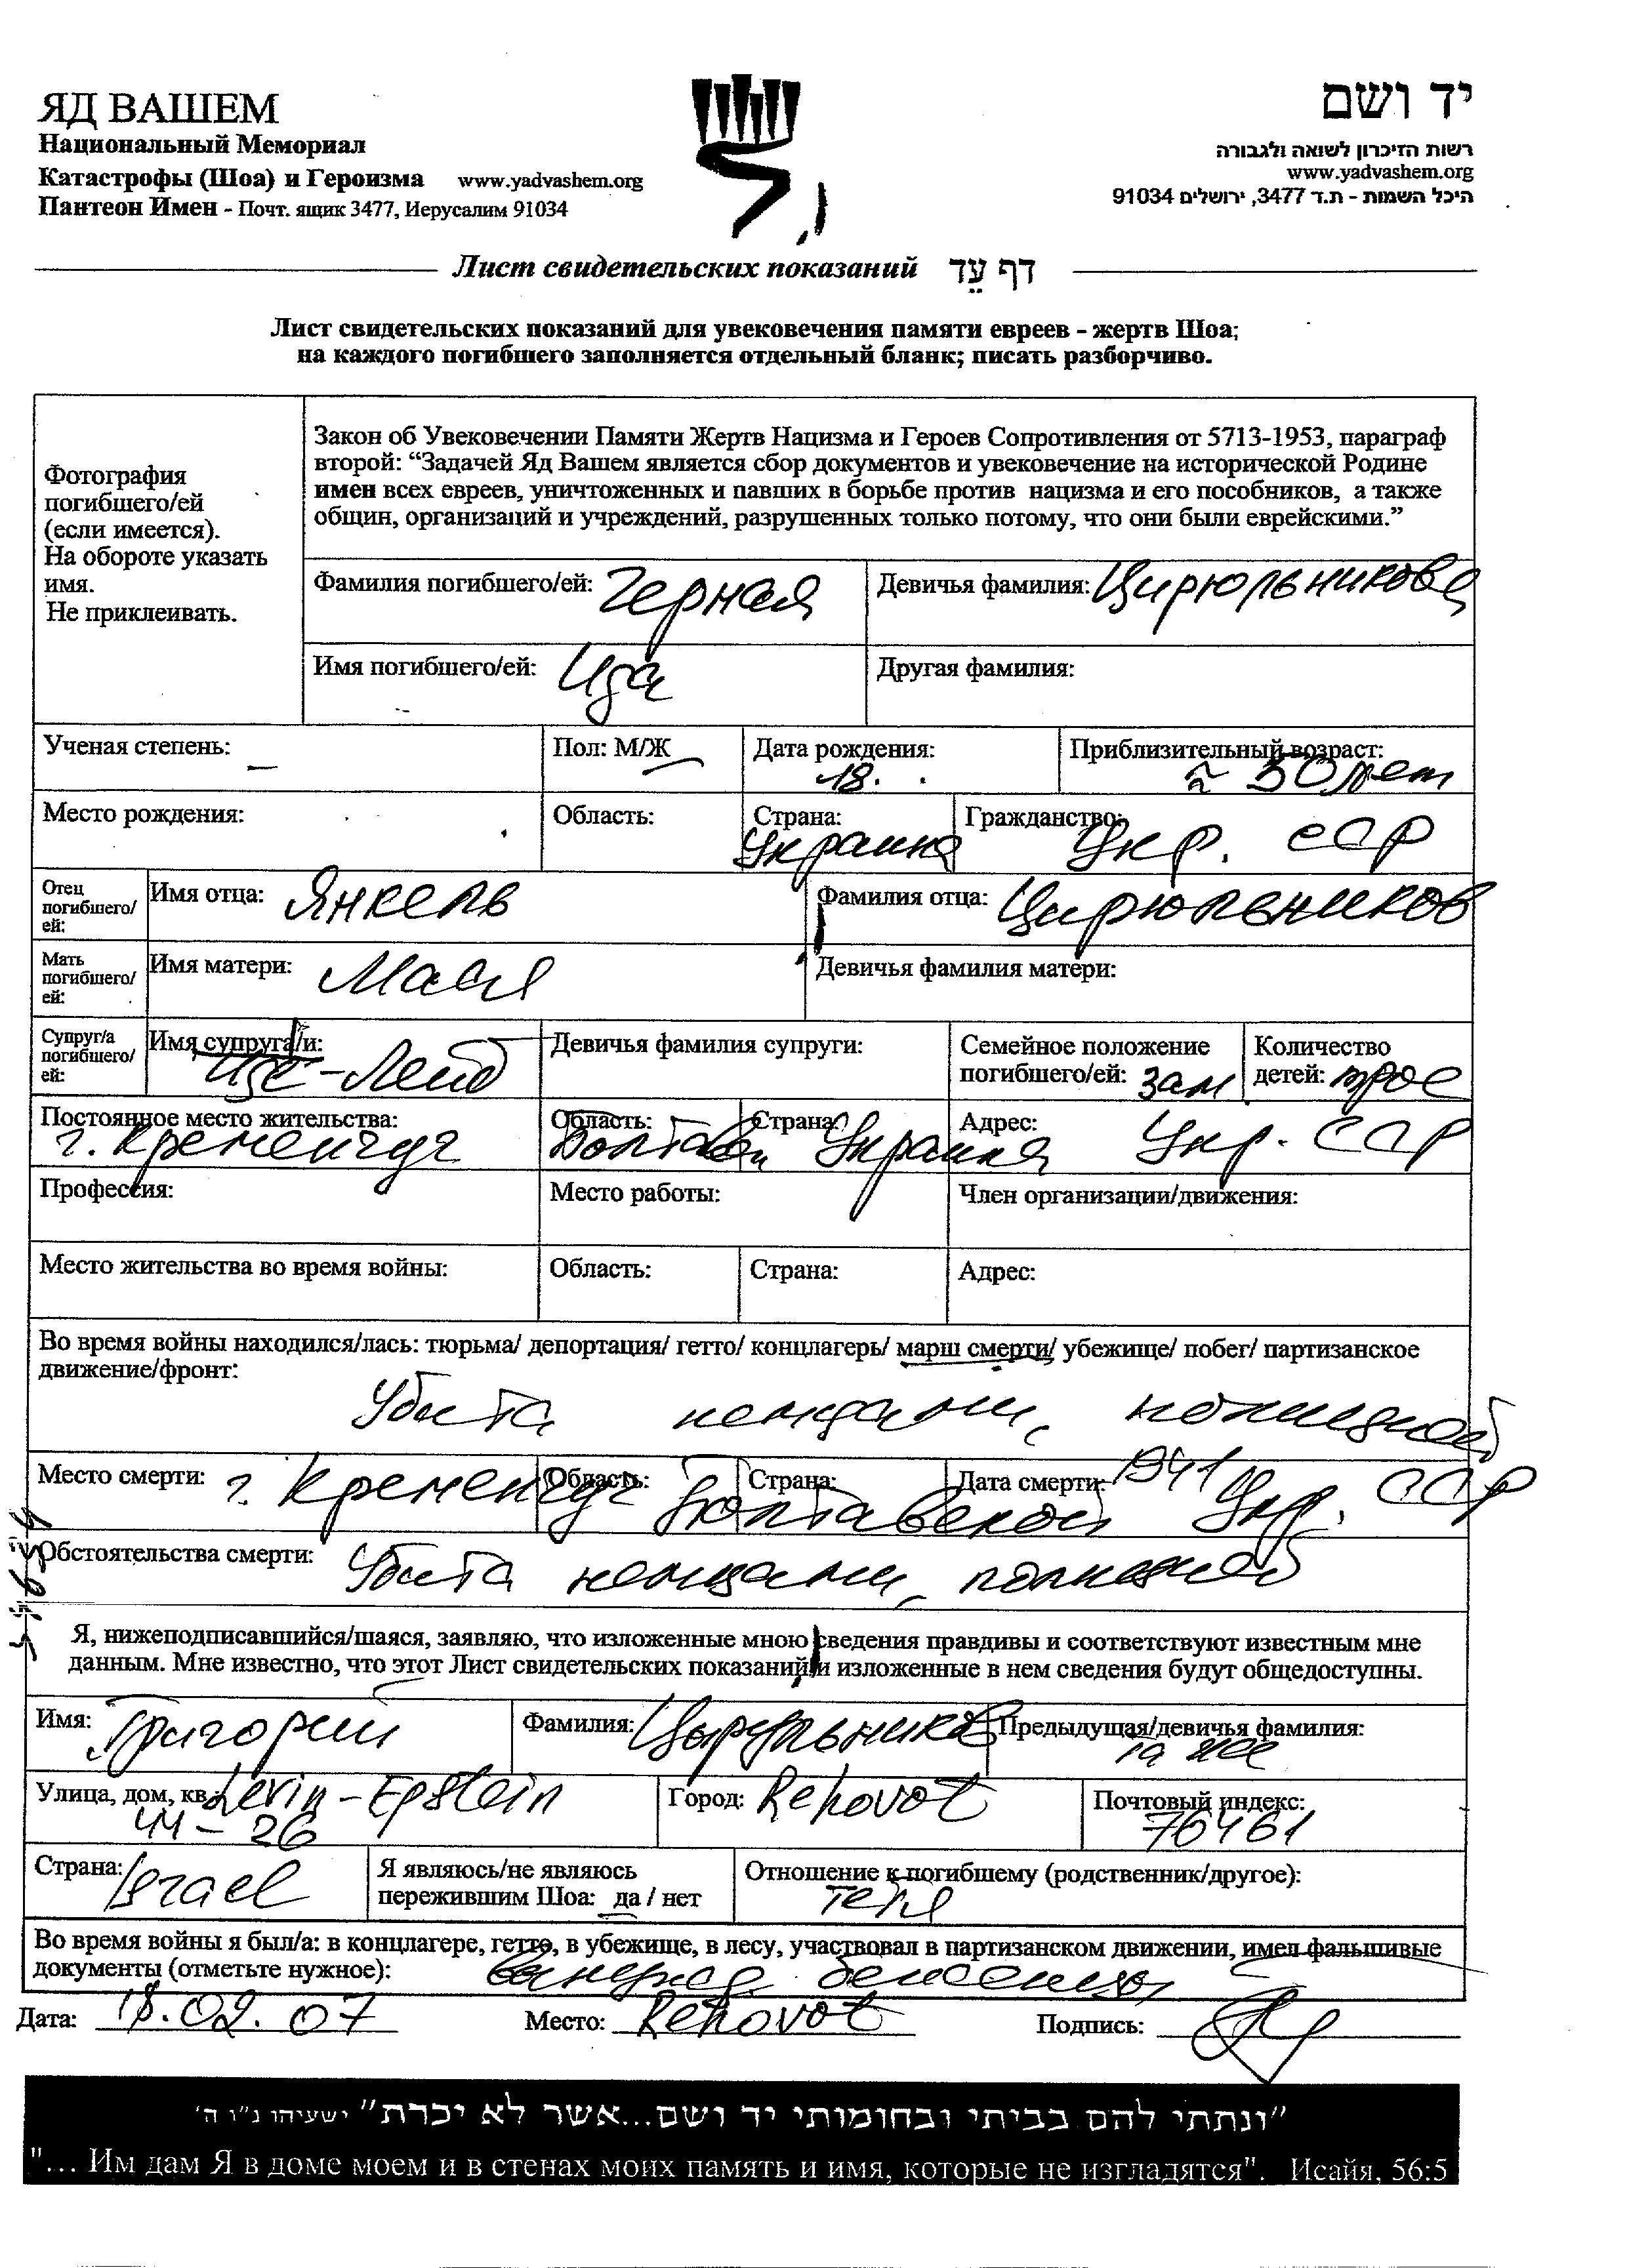 ЯД ВАШЕМ
Национальный Мемориал
Катастрофы (Шоа) и Героизма www.yadvashem.org
Пантеон Имен - Почт. ящик 3477, Иерусалим 91034
יד ושם
רשות הזיכרון לשואה ולגבורה
www.yadvashem.org
היכל השמות - ת.ד 3477, ירושלים 91034
Лист свидетельских показаний דף עֵד
Лист свидетельских показаний для увековечения памяти евреев - жертв Шоа;
на каждого погибшего заполняется отдельный бланк; писать разборчиво.
Фотография
погибшего/ей
(если имеется).
На обороте указать
имя.
Не приклеивать.
Закон об Увековечении Памяти Жертв Нацизма и Героев Сопротивления от 5713-1953, параграф
второй: “Задачей Яд Вашем является сбор документов и увековечение на исторической Родине
имен всех евреев, уничтоженных и павших в борьбе против нацизма и его пособников, а также
общин, организаций и учреждений, разрушенных только потому, что они были еврейскими.”
Фамилия погибшего/ей: Черная Девичья фамилия: Цирюльникова
Имя погибшего/ей: Ида Другая фамилия:
Ученая степень: — Пол: М/Ж Дата рождения: 18. Приблизительный возраст: ≈ 50 лет
Место рождения: Область: Страна: Украина Гражданство: Укр. ССР
Отец погибшего/ей: Имя отца: Янкель Фамилия отца: Цирюльников
Мать погибшего/ей: Имя матери: Мася Девичья фамилия матери:
Супруг/а погибшего/ей: Имя супруга/и: Ице-Лейб Девичья фамилия супруги: Семейное положение погибшего/ей: зам Количество детей: трое
Постоянное место жительства: г. Кременчуг Область: Полтавск Страна: Украина Адрес: Укр. ССР
Профессия: Место работы: Член организации/движения:
Место жительства во время войны: Область: Страна: Адрес:
Во время войны находился/лась: тюрьма/ депортация/ гетто/ концлагерь/ марш смерти/ убежище/ побег/ партизанское
движение/фронт:
Убита немцами, полицией
Место смерти: г. Кременчуг Область: Полтавской Страна: Дата смерти: 1941 Укр. ССР
Обстоятельства смерти: Убита немцами, полицией
Я, нижеподписавшийся/шаяся, заявляю, что изложенные мною сведения правдивы и соответствуют известным мне
данным. Мне известно, что этот Лист свидетельских показаний и изложенные в нем сведения будут общедоступны.
Имя: Григорий Фамилия: Цырульников Предыдущая/девичья фамилия: та же
Улица, дом, кв. Levin-Epstein Город: Rehovot Почтовый индекс:
44-26 76461
Страна: Israel Я являюсь/не являюсь пережившим Шоа: да / нет Отношение к погибшему (родственник/другое): тетя
Во время войны я был/а: в концлагере, гетто, в убежище, в лесу, участвовал в партизанском движении, имел фальшивые
документы (отметьте нужное): беженец
Дата: 18.02.07 Место: Rehovot Подпись:
"ונתתי להם בביתי ובחומותי יד ושם...אשר לא יכרת" ישעיהו נ"ו ה'
"... Им дам Я в доме моем и в стенах моих память и имя, которые не изгладятся". Исайя, 56:5